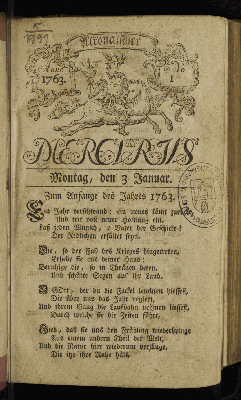 Altonaischer
Anno
1763.
No
1
MERCURIUS
Montag, den 3 Januar.
Zum Anfange des Jahrs 1763.
Ein Jahr verschwand: ein neues kömt zurück,
Und wir voll neuer Hofnung ein.
Laß jeden Wunsch, o Vater der Geschicke!
Der Redlichen erfüllet seyn.
Die, so der Fuß des Krieges hingetreten,
Erhebe sie mit deiner Hand:
Beruhige die, so in Thränen beten,
Und schütte Segen auf ihr Land.
O GOtt, der du die Fackel leuchten hiessest,
Die über uns das Jahr regiert,
Und ihren Gang die Laufbahn nehmen liessest,
Durch welche sie die Zeiten führt,
Gieb, daß sie uns den Frühling wiederbringe
Aus einem andern Theil der Welt,
Und die Natur hier wiederum verjünge,
Die itzt ihre Ruhe hält.